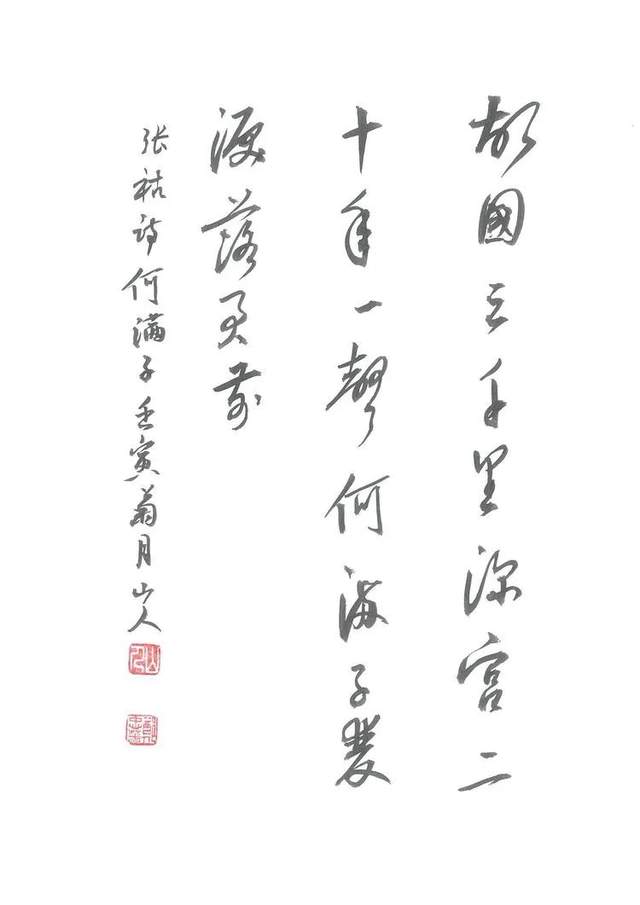 故國三千里深宮二
十年一聲何滿子雙
淚落君前
张祜诗何滿子壬寅菊月山人
山人